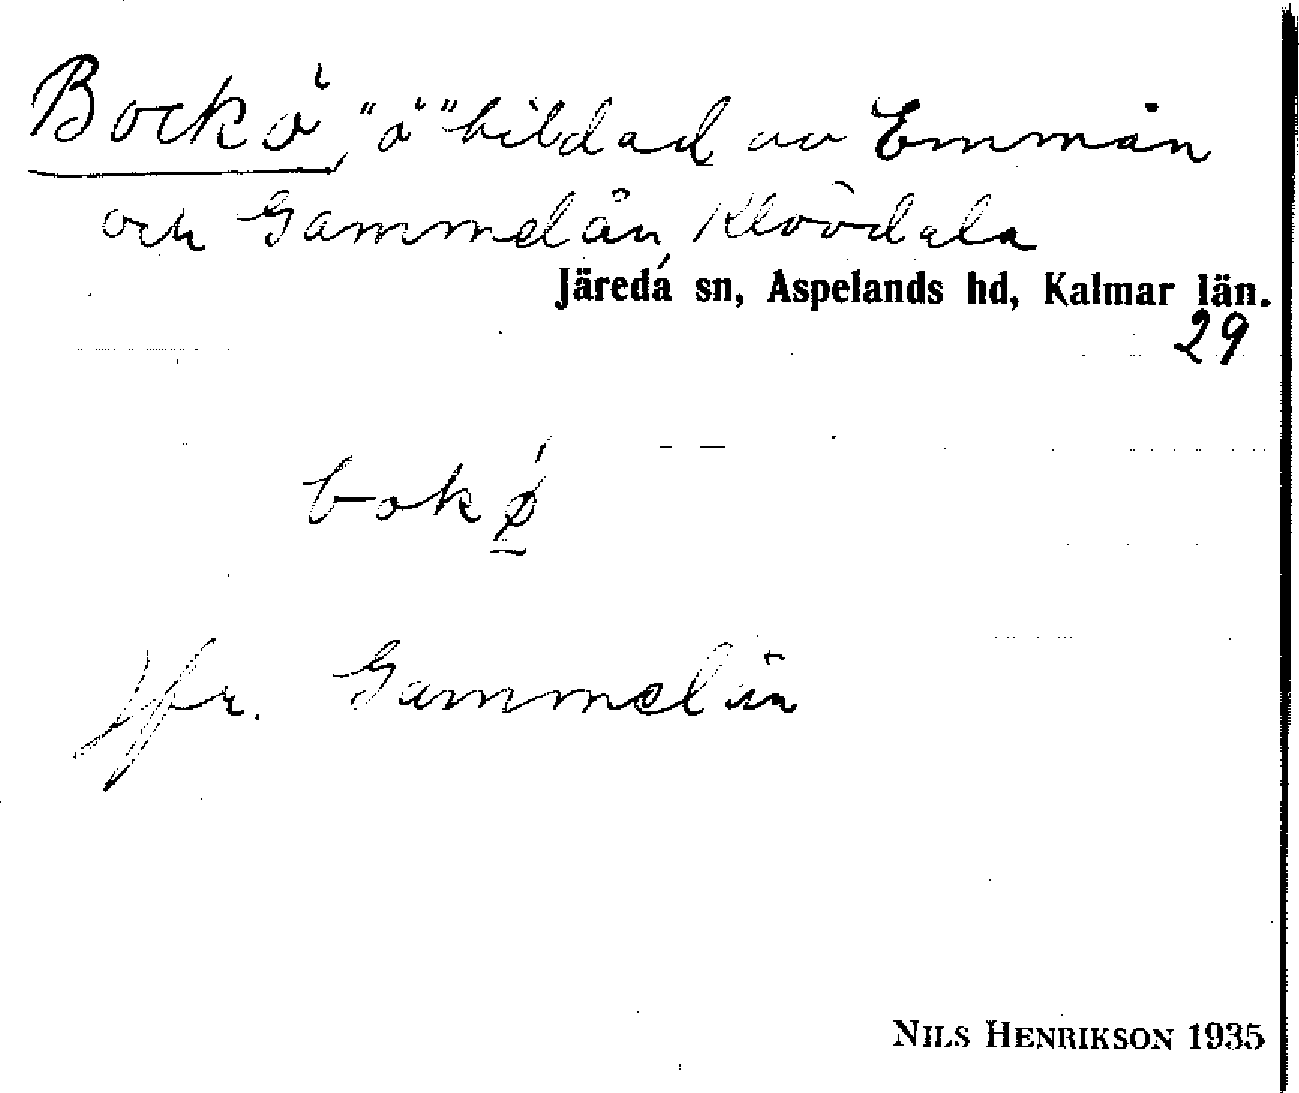 Bockö, "ö" bildad av Emmån
och Gammelån, Klövdala
Järeda sn, Aspelands hd, Kalmar län.
29
bokø
Jfr. Gammelån
NILS HENRIKSON 1935